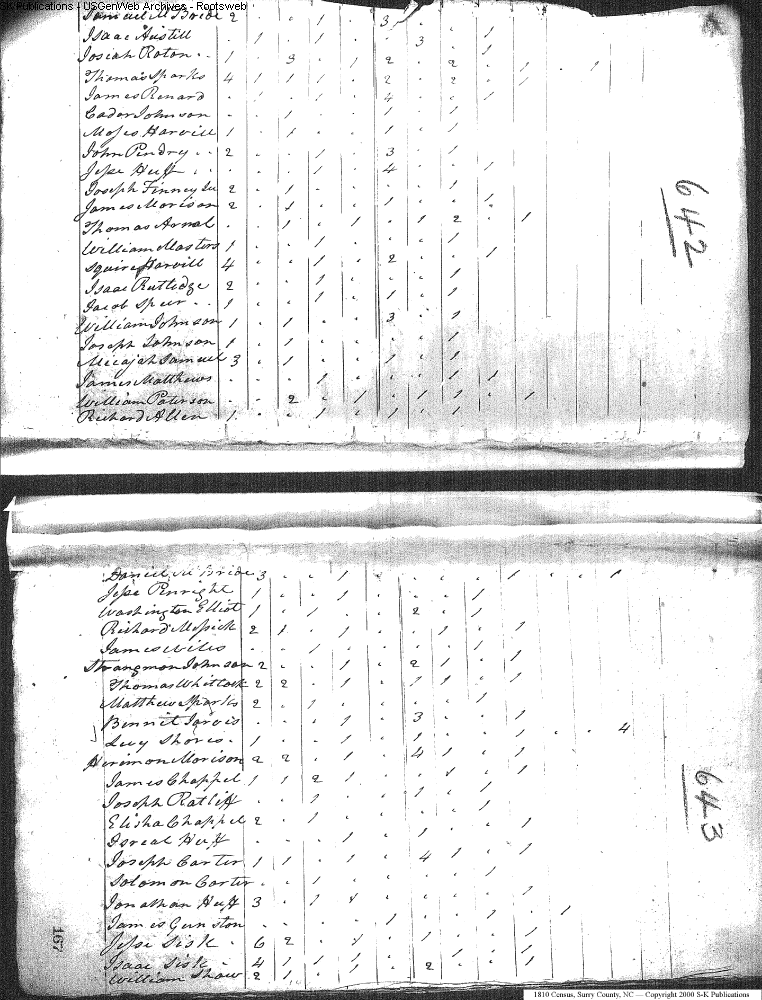 S-K Publications - USGenWeb Archives - Rootsweb
Samuel McBride 2 . . 1 . 3 . . 1
Isaac Austill . 1 . 1 . . 3 . 1
Josiah Roton . . 1 . 3 . 1 2 . 2 . 1 . 1
Thomas Sparks 4 1 1 1 . 2 . 2 . 1
James Renard . . . 1 . 4 . . 1
Cader Johnson . . 1 . . 1 . 1
Moses Harvill 1 . 1 . . 1 . 1
John Pendry . . 2 . . 1 . 3 . 1
Jesse Huff . . . . 1 . 4 . . 1
Joseph Finney 2 . 1 . . . . 1
James Morison 2 . 1 . . . . . 1
Thomas Arnal . . 1 . 1 . 1 2 . 1
William Masters 1 . . 1 . . . 1
Squire Harvill 4 . . 1 . 2 . . 1
Isaac Rutledge 2 . . 1 . . . 1
Jacob Speer . . 1 . . 1 . 1 . 1
William Johnson 1 . 1 . . 3 . 1
Joseph Johnson 1 . 1 . . . . 1
Micajah Samuel 3 . 1 . . 1 . 1
James Matthews . . . 1 . . . 1 1
William Paterson . . 2 . 1 1 1 1 . 1
Richard Allen 1 . . 1 . 1 . 1
642
Daniel McBride 3 . . 1 . . . . 1 . . 1
Jesse Enright 1 . . 1 . . . 1
Washington Elliot 1 . 1 . . 2 . 1
Richard Messick 2 1 . 1 . . 1 . 1
James Wiles . . 1 . . . . 1
Strangmon Johnson 2 . . 1 . 2 1 . 1
Thomas Whitlock 2 2 . 1 . 1 1 . 1
Matthew Sparks 2 . 1 . . . . 1
Bennit Jarvis . . . 1 . 3 . . 1
Levy Shores . 1 . . 1 . 1 . . 1 . . 4
Herimon Morison 2 2 . 1 . 4 1 . 1
James Chappel 1 1 2 1 . . 1 . 1
Joseph Ratliff . . 1 . . 1 . 1
Elisha Chappel 2 . 1 . . . . . 1
Isreal Huff . . . 1 . 1 . . 1
Joseph Carter 1 1 . 1 . 4 1 . 1
Solomon Carter . . 1 . . . . 1
Jonathan Huff 3 . 1 1 . . . . 1
James Gunston . . . . 1 . . . . 1
Jesse Sisk . 6 2 . 1 . . 1 . 1
Isaac Sisk . 4 1 1 1 . 2 . . 1
William Shaw 2 1
643
167
1810 Census, Surry County, NC — Copyright 2000 S-K Publications